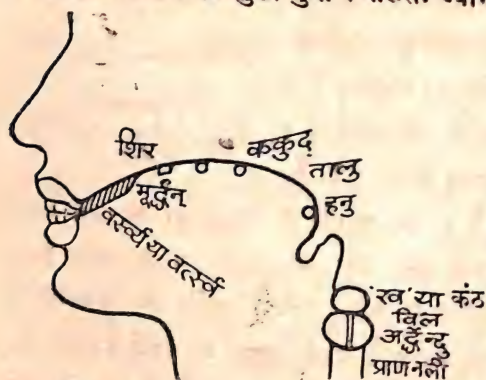 शिर
ककुद्
तालु
मूर्द्धन्
हनु
वर्स्व्य या वर्त्स्व
'ख' या कंठ
विल
अर्द्धेन्दु
प्राण नली